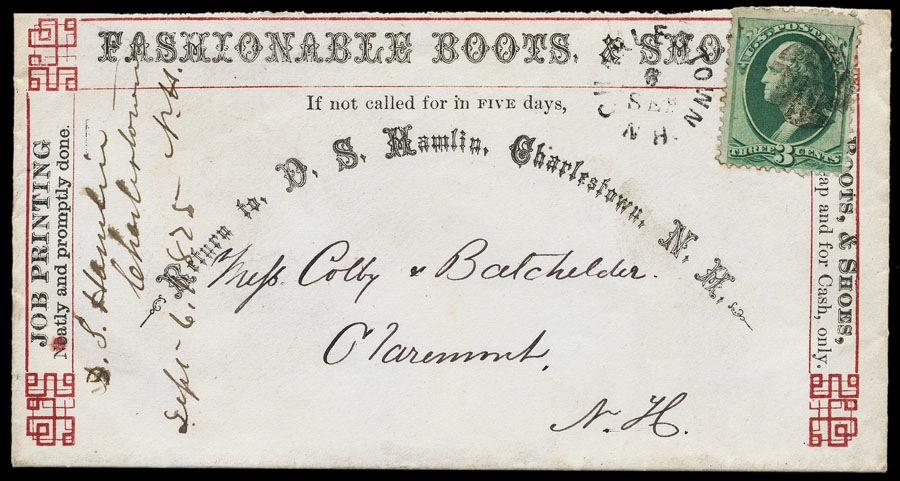 FASHIONABLE BOOTS, & SHO
If not called for in FIVE days,
Return to, D. S. Hamlin, Charlestown, N. H.
Mess Colby & Batchelder.
Claremont,
N. H.
JOB PRINTING
Neatly and promptly done.
D. S. Hamlin
Charlestown N.H.
Sept 6. 1875
TOWN
6
SEP
N.H.
U.S. POSTAGE
THREE 3 CENTS
BOOTS, & SHOES,
eap and for Cash, only.